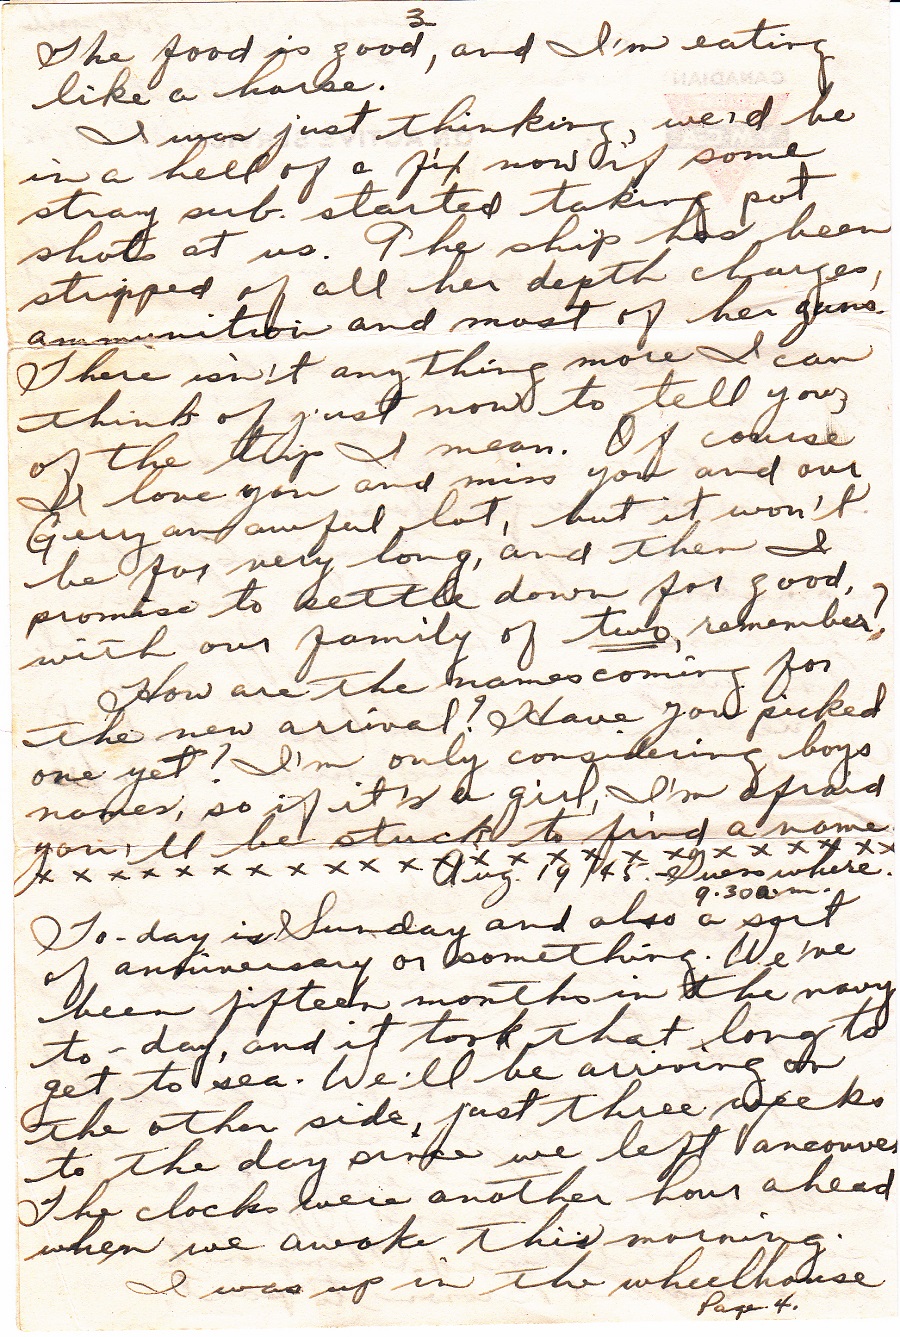 3
The food is good, and I'm eating
like a horse.
I was just thinking, we'd be
in a hell of a fix now if some
stray sub. started taking pot
shots at us. The ship has been
stripped of all her depth charges,
ammunition and most of her guns.
There isn't anything more I can
think of just now to tell you,
of the trip I mean. Of course
I love you and miss you and our
Gerry an awful lot, but it won't
be for very long, and then I
promise to settle down for good,
with our family of two, remember?
How are the names coming for
the new arrival? Have you picked
one yet? I'm only considering boys
names, so if it's a girl, I'm afraid
you'll be stuck to find a name.
x x x x x x x x x x x x x x x x x x x x x x x x
Aug. 19/45. - Overswhere.
9.30 a.m.
To-day is Sunday and also a sort
of anniversary or something. We've
been fifteen months in the navy
to-day, and it took that long to
get to sea. We'll be arriving on
the other side, just three weeks
to the day since we left Vancouver
The clocks were another hour ahead
when we awoke this morning.
I was up in the wheelhouse
Page 4.
CANADIAN
ON ACTIVE SERVICE